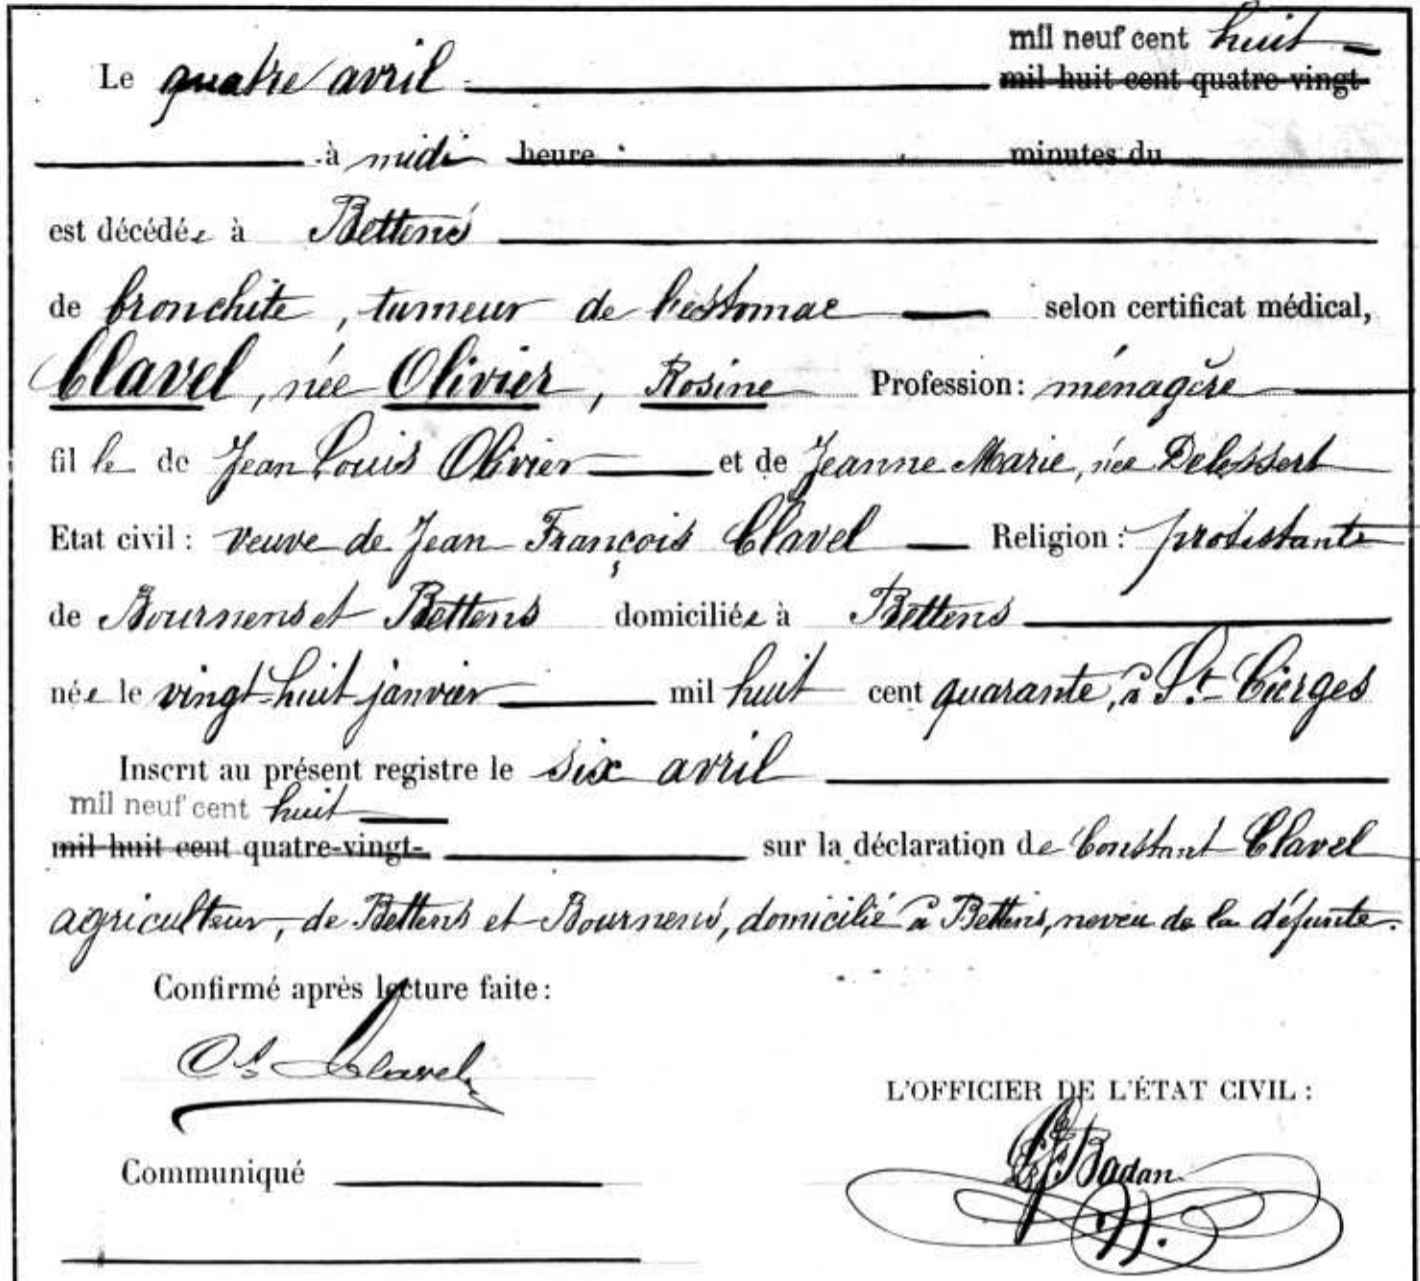 mil neuf cent huit
Le quatre avril mil huit cent quatre-vingt
à midi heure minutes du
est décédée à Bettens
de bronchite, tumeur de l'estomac selon certificat médical,
Clavel, née Olivier, Rosine Profession: ménagère
fille de Jean Louis Olivier et de Jeanne Marie, née Delessert
Etat civil: veuve de Jean François Clavel Religion: protestante
de Bournens et Bettens domiciliée à Bettens
née le vingt-huit janvier mil huit cent quarante, à St. Cierges
Inscrit au présent registre le six avril
mil neuf cent huit
mil huit cent quatre-vingt- sur la déclaration de Constant Clavel
agriculteur, de Bettens et Bournens, domicilié à Bettens, neveu de la défunte.
Confirmé après lecture faite:
Ct Clavel
L'OFFICIER DE L'ÉTAT CIVIL:
Badan
Communiqué